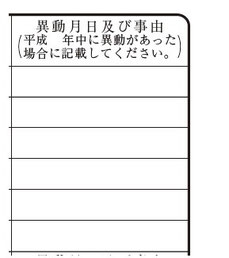 異動月日及び事由
(平成　年中に異動があった
場合に記載してください。)